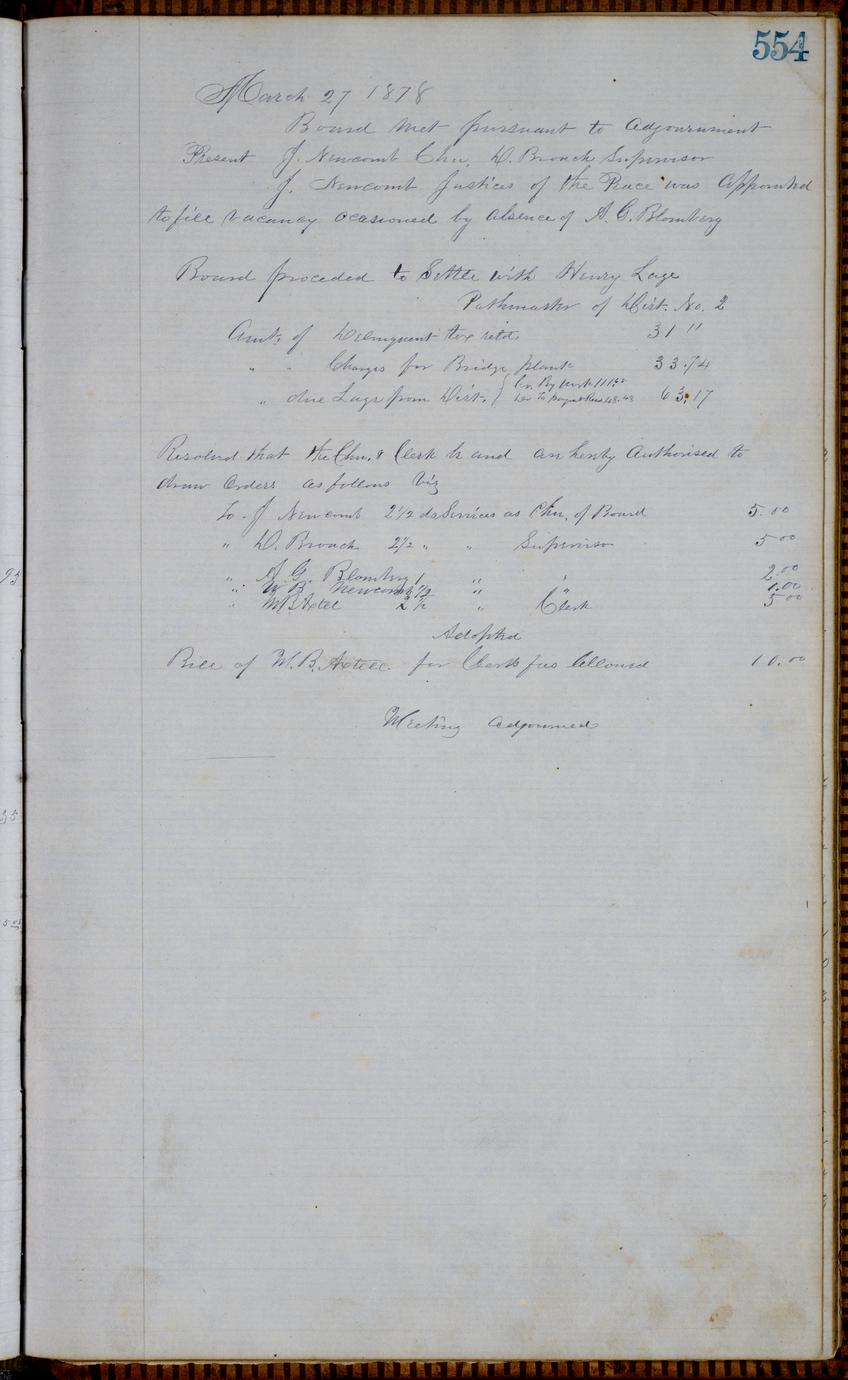 554
March 27 1878
Board met pursuant to adjournment
Present J. Newcomb Chn. D. Bronch Supervisor
J. Newcomb Justices of the Peace was appointed
to fill vacancy ocasioned by absence of A. G. Blomberg
Board proceded to Settle with Henry Lage
Pathmaster of Dist. No. 2
Amt. of Delinquent tax retd. 31 11
" " Charges for Bridge plank 33.74
" due Lage from Dist. 63.17
Cr. By Work 111.
Resolved that the Chn. & Clerk be and are hereby authorised to
draw Orders as follows Viz
To J Newcomb 2 1/2 ds Services as Chn. of Board 5.00
" D. Bronch 2 1/2 " " Supervisor 5 00
" A. G. Blomberg 1 " " 2.00
" W B Newcomb 1/2 " " 1.00
" M B Axtell 2 1/2 " Clerk 5 00
Adopted
Bill of M. B. Axtell for Clerks fees allowed 10.00
Meeting adjourned
95
35